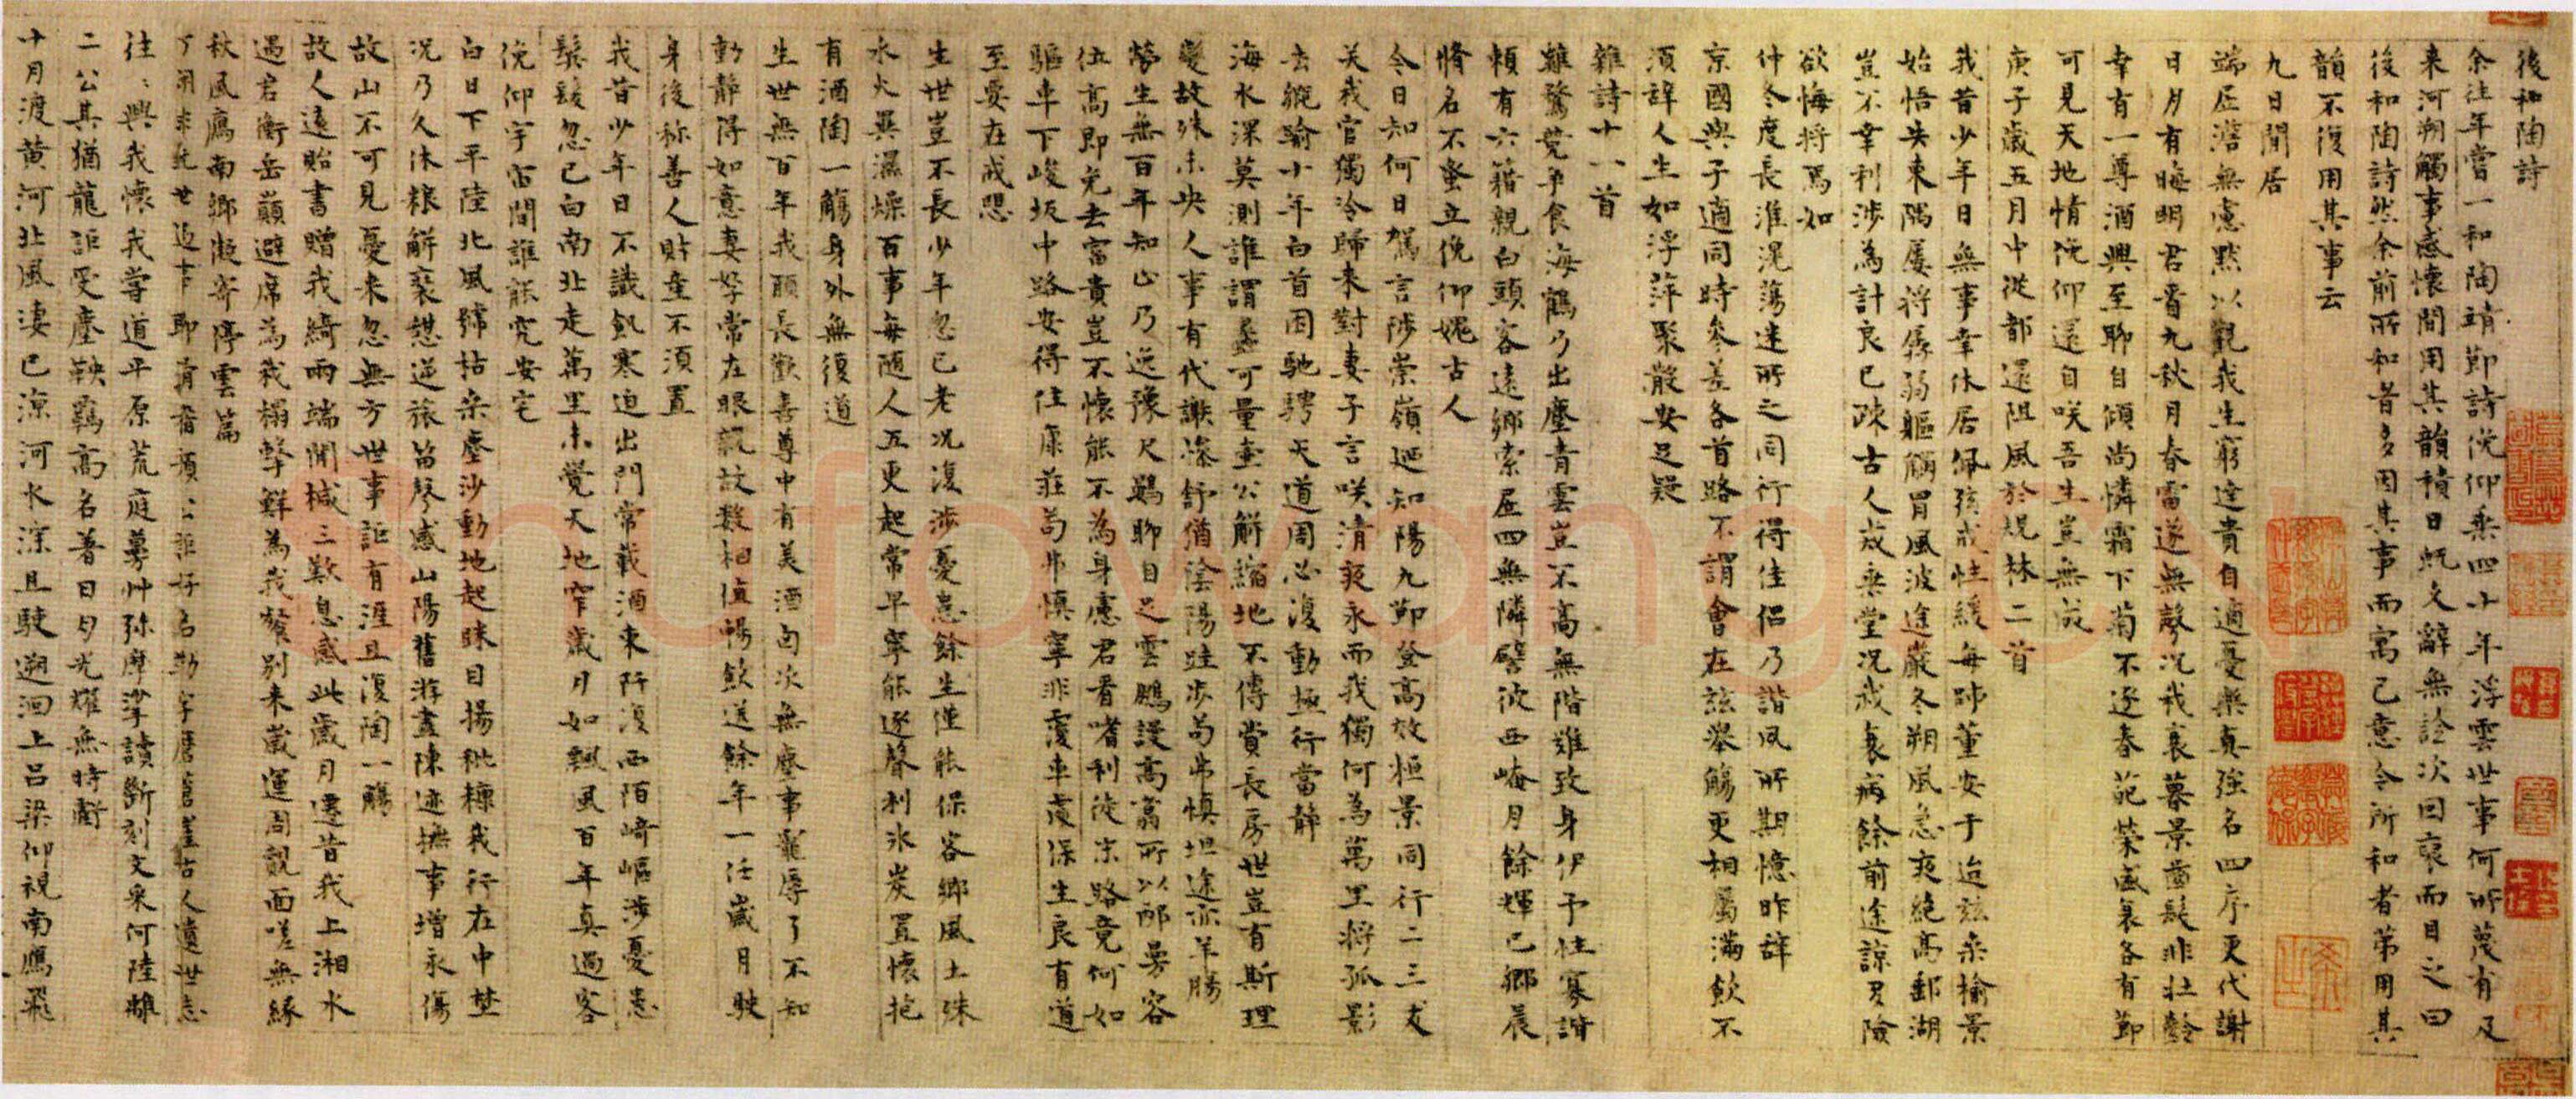 後和陶詩
余往年嘗一和陶靖節詩俛仰乘四十年浮雲世事何所蔑有及
来河朔觸事感懷間用其韻積日既久辭無詮次因裒而目之曰
後和陶詩然余前所和昔多因其事而寓己意今所和者第用其
韻不復用其事云
九日閒居
端居澹無慮默以觀我生窮達貴自適憂樂真強名四序更代謝
日月有晦明君看九秋月春雷遂無聲况我衰暮景齒髮非壮齡
幸有一尊酒興至聊自傾尚憐霜下菊不逐春葩榮盛衰各有節
可見天地情俛仰還自咲吾生豈無成
庚子歲五月中從都還阻風於規林二首
我昔少年日無事幸休居佩弦戒性緩每師董安于迨茲桑榆景
始悟失東隅屢将孱弱軀觸冒風波途嚴冬朔風急夜絶高郵湖
豈不幸利涉為計良已踈古人戒垂堂况我衰病餘前途諒多險
欲悔将焉如
仲冬度長淮滉蕩迷所之同行得佳侶乃諧夙所期憶昨辞
京國與子適同時參差各首路不謂會在茲舉觴更相屬滿飲不
須辞人生如浮萍聚散安足疑
雜詩十一首
雞鶩競争食海鶴乃出塵青雲豈不高無階難致身伊予性寡諧
頼有六籍親白頭客遠鄉索居四無隣譬彼西崦月餘輝已郷晨
脩名不蚤立俛仰媿古人
今日知何日駕言陟崇嶺廻知陽九節登高效桓景同行二三友
关我官獨冷歸来對妻子言咲清夜永而我獨何為萬里将孤影
去縱踰十年白首困馳騁天道周必復動極行當静
海水深莫測誰謂蠡可量壷公解縮地不傳賞長房世豈有斯理
變故殊未央人事有代謝慘舒猶陰陽跬步苟弗慎坦途亦羊腸
勞生無百年知止乃逸豫尺鷃聊自足雲鵬謾高翥所以邴曼容
位高即免去富貴豈不懷能不為身慮君看嗜利徒末路竟何如
驅車下峻坂中路安得住康莊苟弗慎寧非覆車處保生良有道
至要在戒懼
生世豈不長少年忽已老况復涉憂患餘生僅能保客鄉風土殊
水火異濕燥百事每随人五更起常早寧能逐聲利氷炭置懷抱
有酒陶一觴身外無復道
生世無百年我願長歡喜尊中有美酒自次無塵事寵辱了不知
動静得如意妻孥常在眼親故数相值暢飲送餘年一任歲月駛
身後称善人財産不須置
我昔少年日不識飢寒迫出門常載酒東阡復西陌崎嶇涉憂患
鬂髮忽已白南北走萬里未覺天地窄歲月如飄風百年真過客
俛仰宇宙間誰能究安宅
白日下平陸北風歸枯桒塵沙動地起眯目揚秕糠我行在中埜
况乃久休粮解裘憇逆旅笛聲感山陽舊游盡陳迹撫事增永傷
故山不可見憂来忽無方世事詎有涯且復陶一觴
故人遠貽書贈我綺兩端開椷三歎息感此歲月遷昔我上湘水
過君衡岳巔避席為我榻擊鮮為我餐别来歲運周覿面嗟無緣
秋風鴈南郷漫寄停雲篇
往々興我懷我嘗道平原荒庭蓦艸弥摩挲讀斷刻文采何陸離
二公其猶龍詎受塵鞅羈高名著日月光耀無時虧
十月渡黄河北風凄已凉河水深且駛遡洄上吕梁仰視南鴈飛